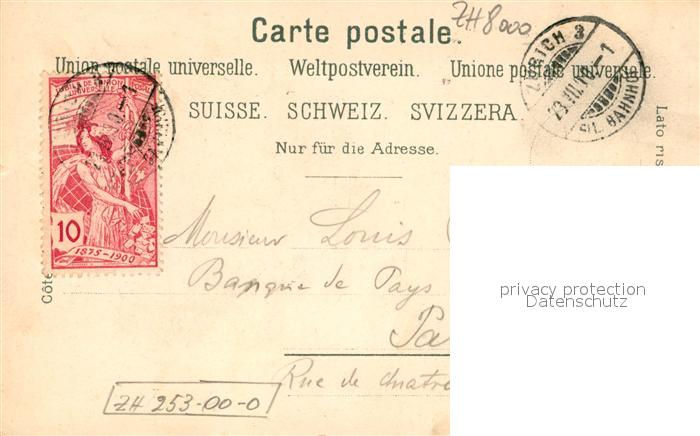 ZH 8000
Carte postale.
Union postale universelle. Weltpostverein. Unione postale universale.
SUISSE. SCHWEIZ. SVIZZERA.
Nur für die Adresse.
JUBILÉ DE L'UNION POSTALE
UNIVERSELLE
10
1875-1900
ZÜRICH 3
BAHNHOF
Côté
Lato ris
Monsieur Louis
Banque de Pays
Pa
Rue de quatre
ZH 253-00-0
privacy protection
Datenschutz